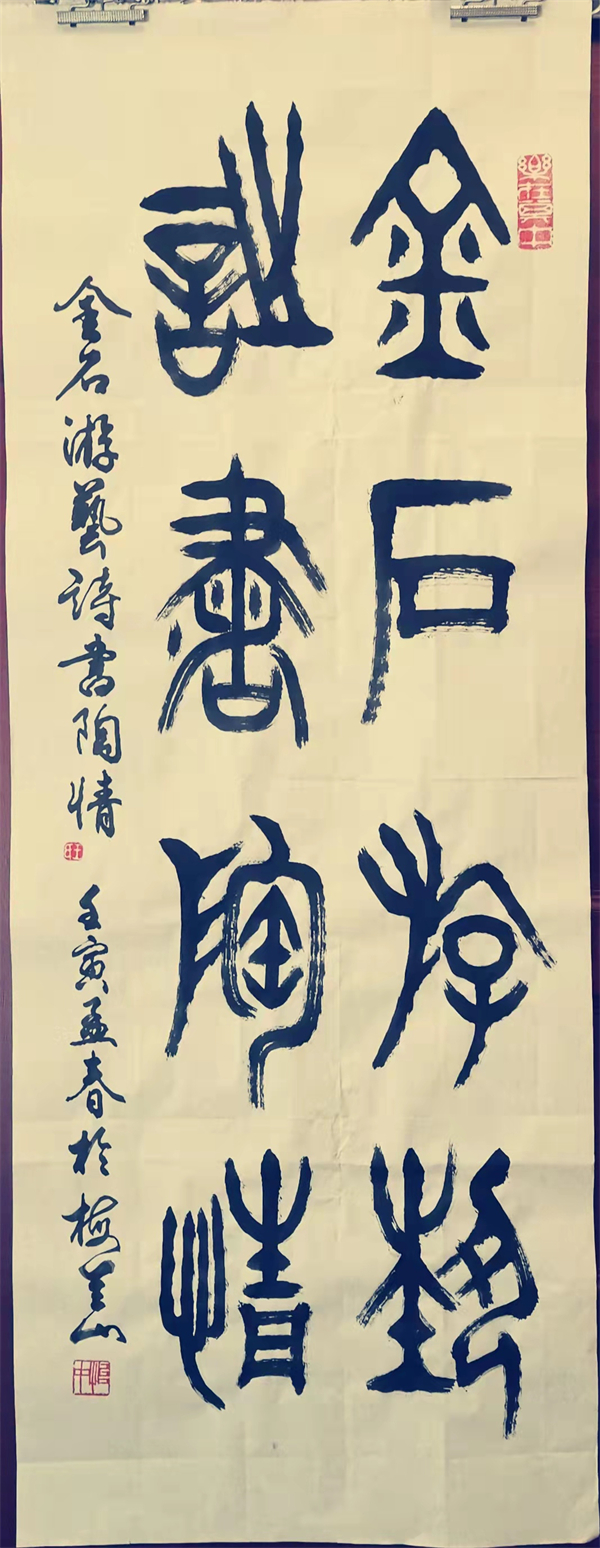 樂在其中
金石游藝
詩書陶情
金石游藝詩書陶情
壬寅孟春於梅山